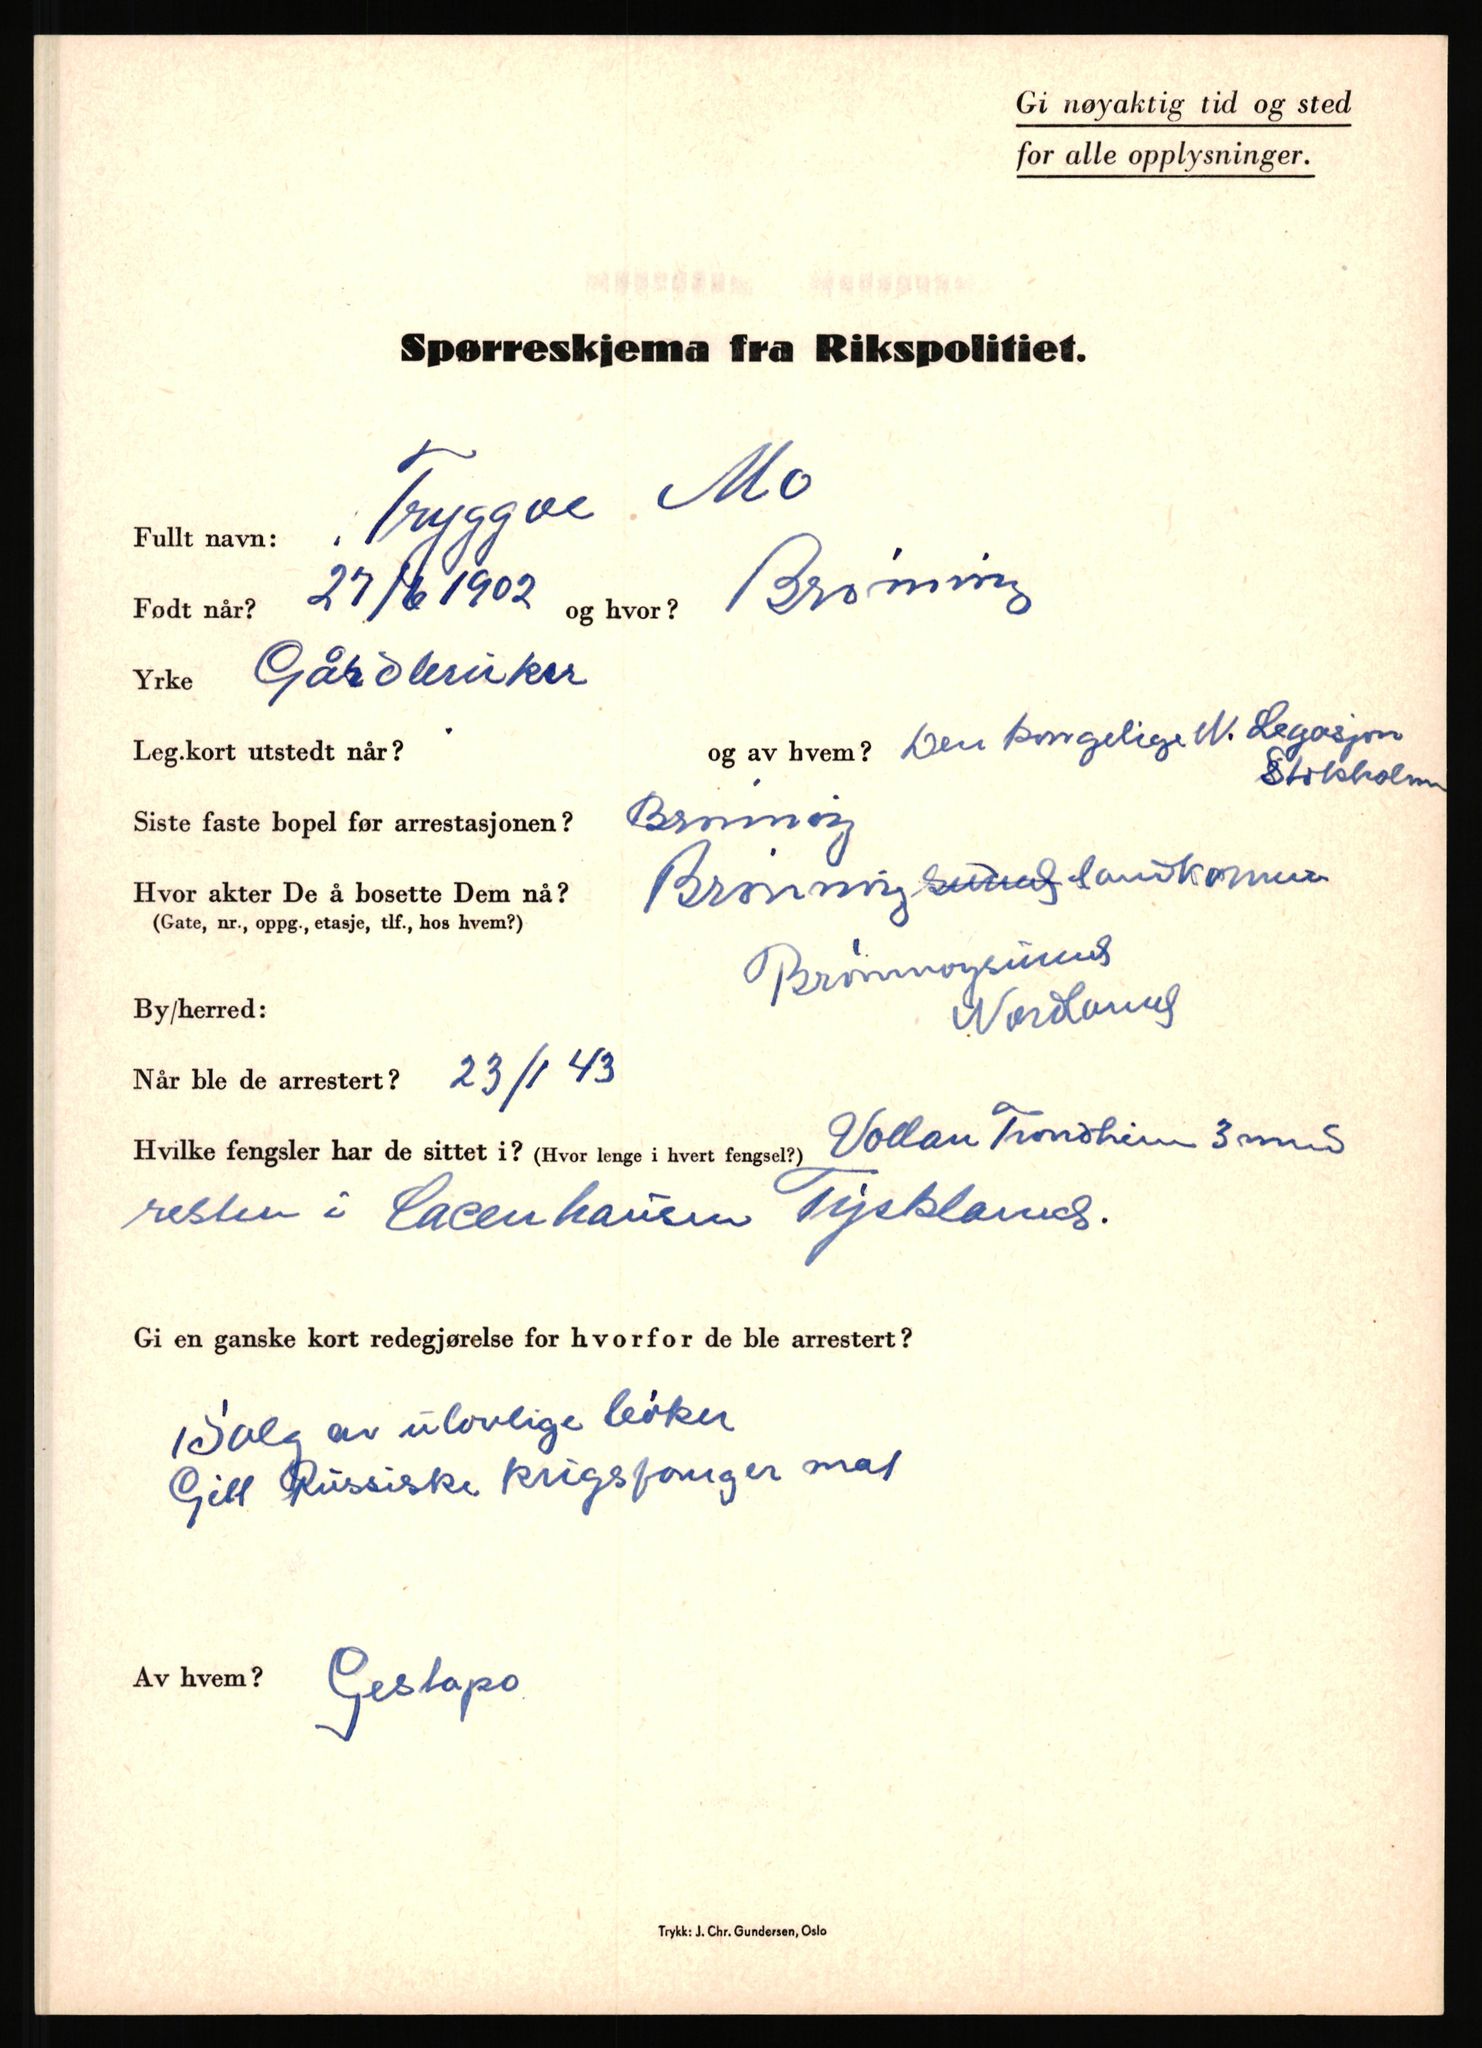 Gi nøyaktig tid og sted
for alle opplysninger.
Spørreskjema fra Rikspolitiet.
Fullt navn: Tryggve Mo
Født når? 27/6 1902 og hvor? Brønnøy
Yrke Gårdbruker
Leg.kort utstedt når? og av hvem? Den kongelige N. Legasjon
Stokholm
Siste faste bopel før arrestasjonen? Brønnøy
Hvor akter De å bosette Dem nå? Brønnøy sund landkomune
(Gate, nr., oppg., etasje, tlf., hos hvem?)
Brønnøysund
By/herred: Nordland
Når ble de arrestert? 23/1 43
Hvilke fengsler har de sittet i? (Hvor lenge i hvert fengsel?) Vollan Trondheim 3 mnd
resten i Sacenhausen Tyskland.
Gi en ganske kort redegjørelse for hvorfor de ble arrestert?
Salg av ulovlige bøker
Gitt Russiske krigsfanger mat
Av hvem? Gestapo
Trykk: J. Chr. Gundersen, Oslo